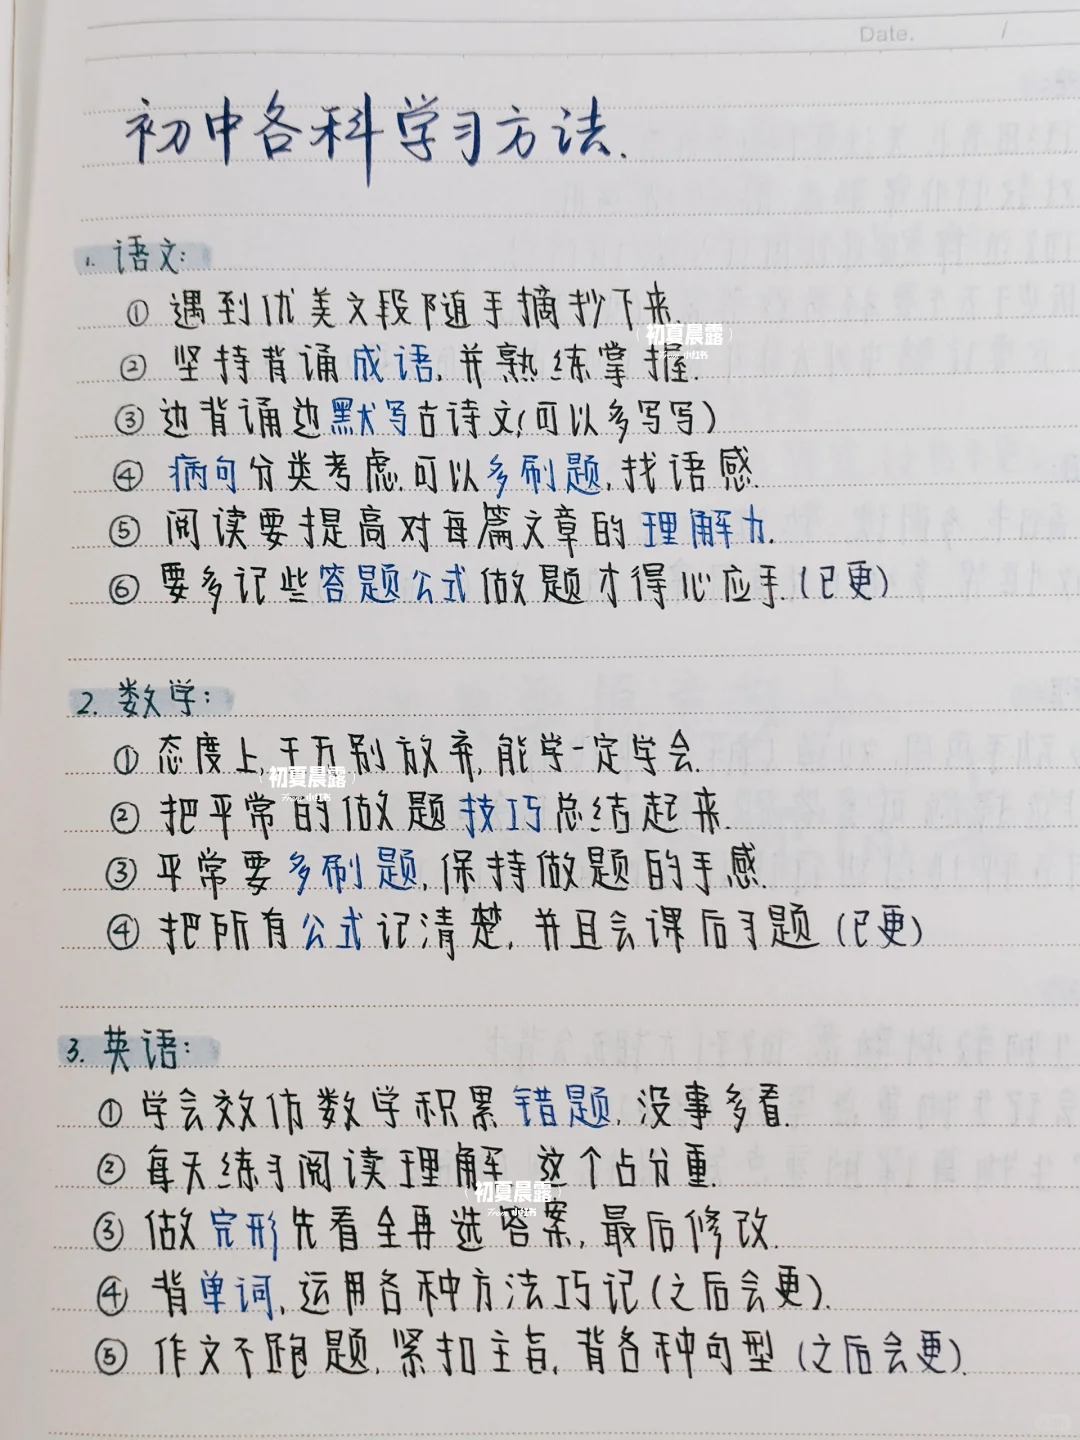 Date. /
初中各科学习方法.
1. 语文:
① 遇到优美文段随手摘抄下来.
初夏晨露
From 小红书
② 坚持背诵成语,并熟练掌握.
③ 边背诵边默写古诗文(可以多写写)
④ 病句分类考虑.可以多刷题,找语感.
⑤ 阅读要提高对每篇文章的理解力.
⑥ 要多记些答题公式做题才得心应手.(已更)
2. 数学:
① 态度上,千万别放弃,能学一定学会.
初夏晨露
From 小红书
② 把平常的做题技巧总结起来.
③ 平常要多刷题,保持做题的手感.
④ 把所有公式记清楚,并且会课后习题(已更)
3. 英语:
① 学会效仿数学积累错题,没事多看.
② 每天练习阅读理解 这个占分重.
初夏晨露
From 小红书
③ 做完形先看全再选答案,最后修改.
④ 背单词,运用各种方法巧记(之后会更).
⑤ 作文不跑题,紧扣主旨,背各种句型(之后会更).